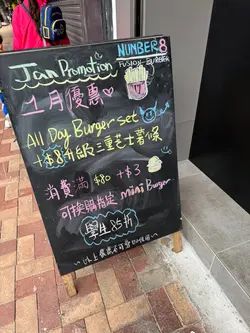 Jan Promotion
NUMBER8
FUSION BURGER
1月優惠
All Day Burger set
+$8升級三重芝士薯條
消費滿 $80 +$3
可換購指定 mini Burger
學生85折
以上優惠不可